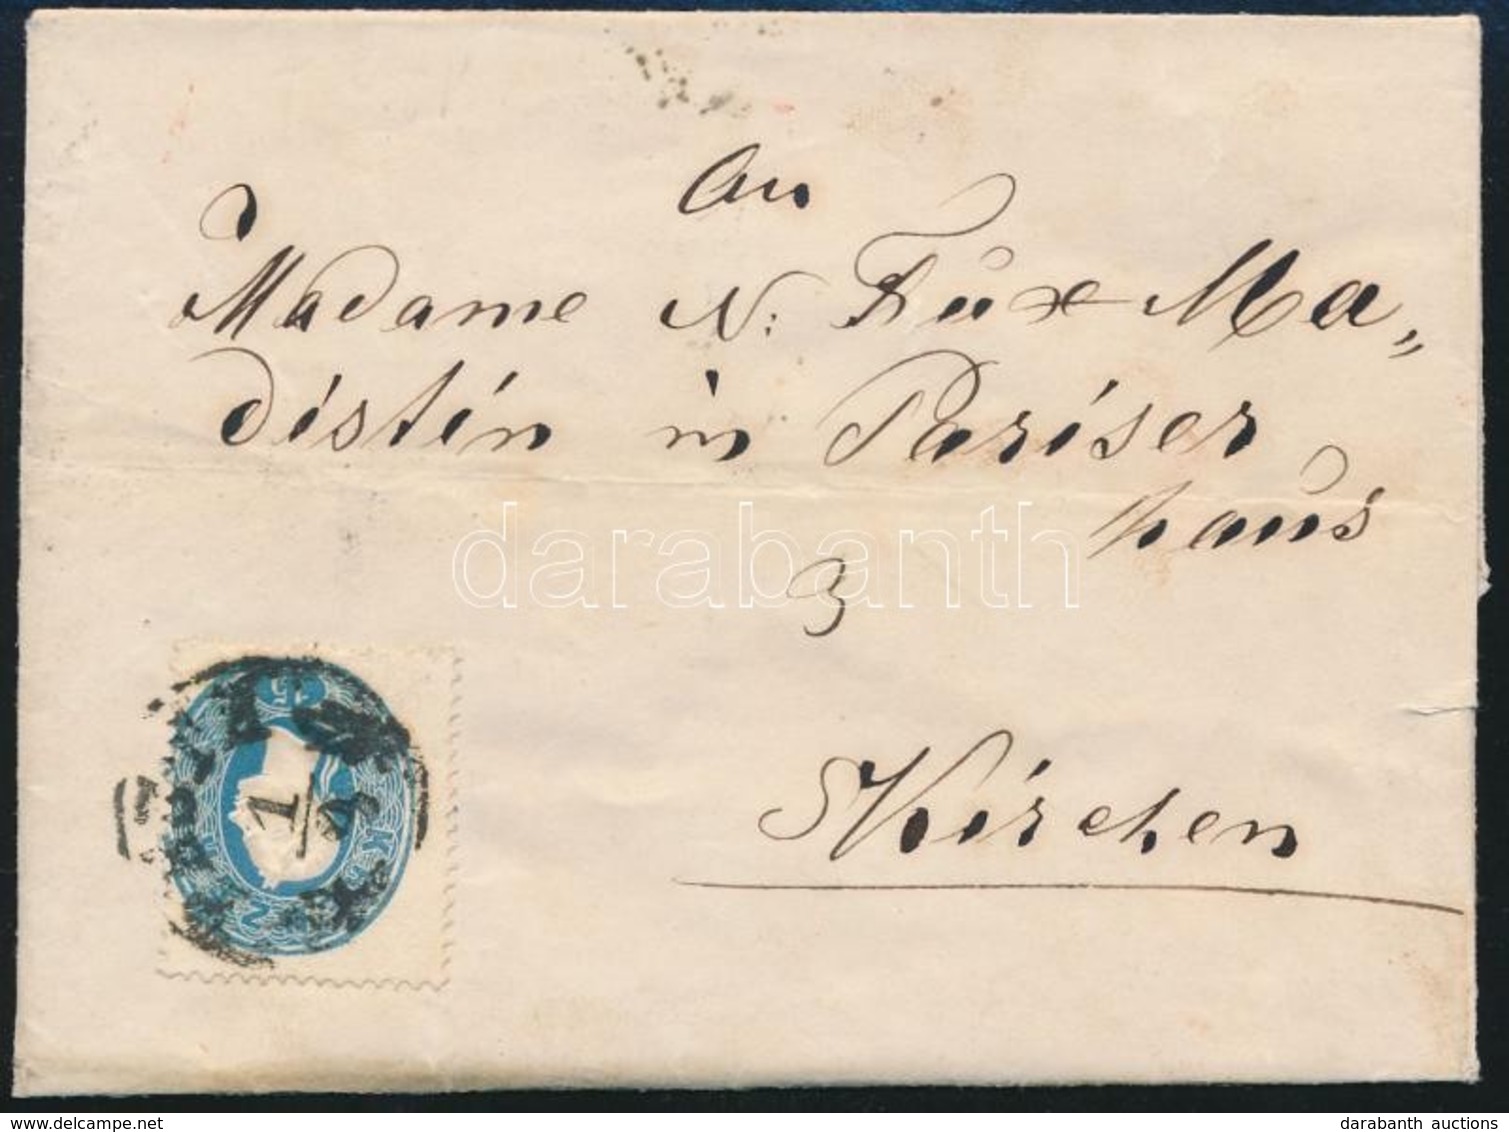 An
Madame N: Fux Ma„
distin in Pariser
haus
3
Kirchen
darabanth
15
1/4
darabanth auctions